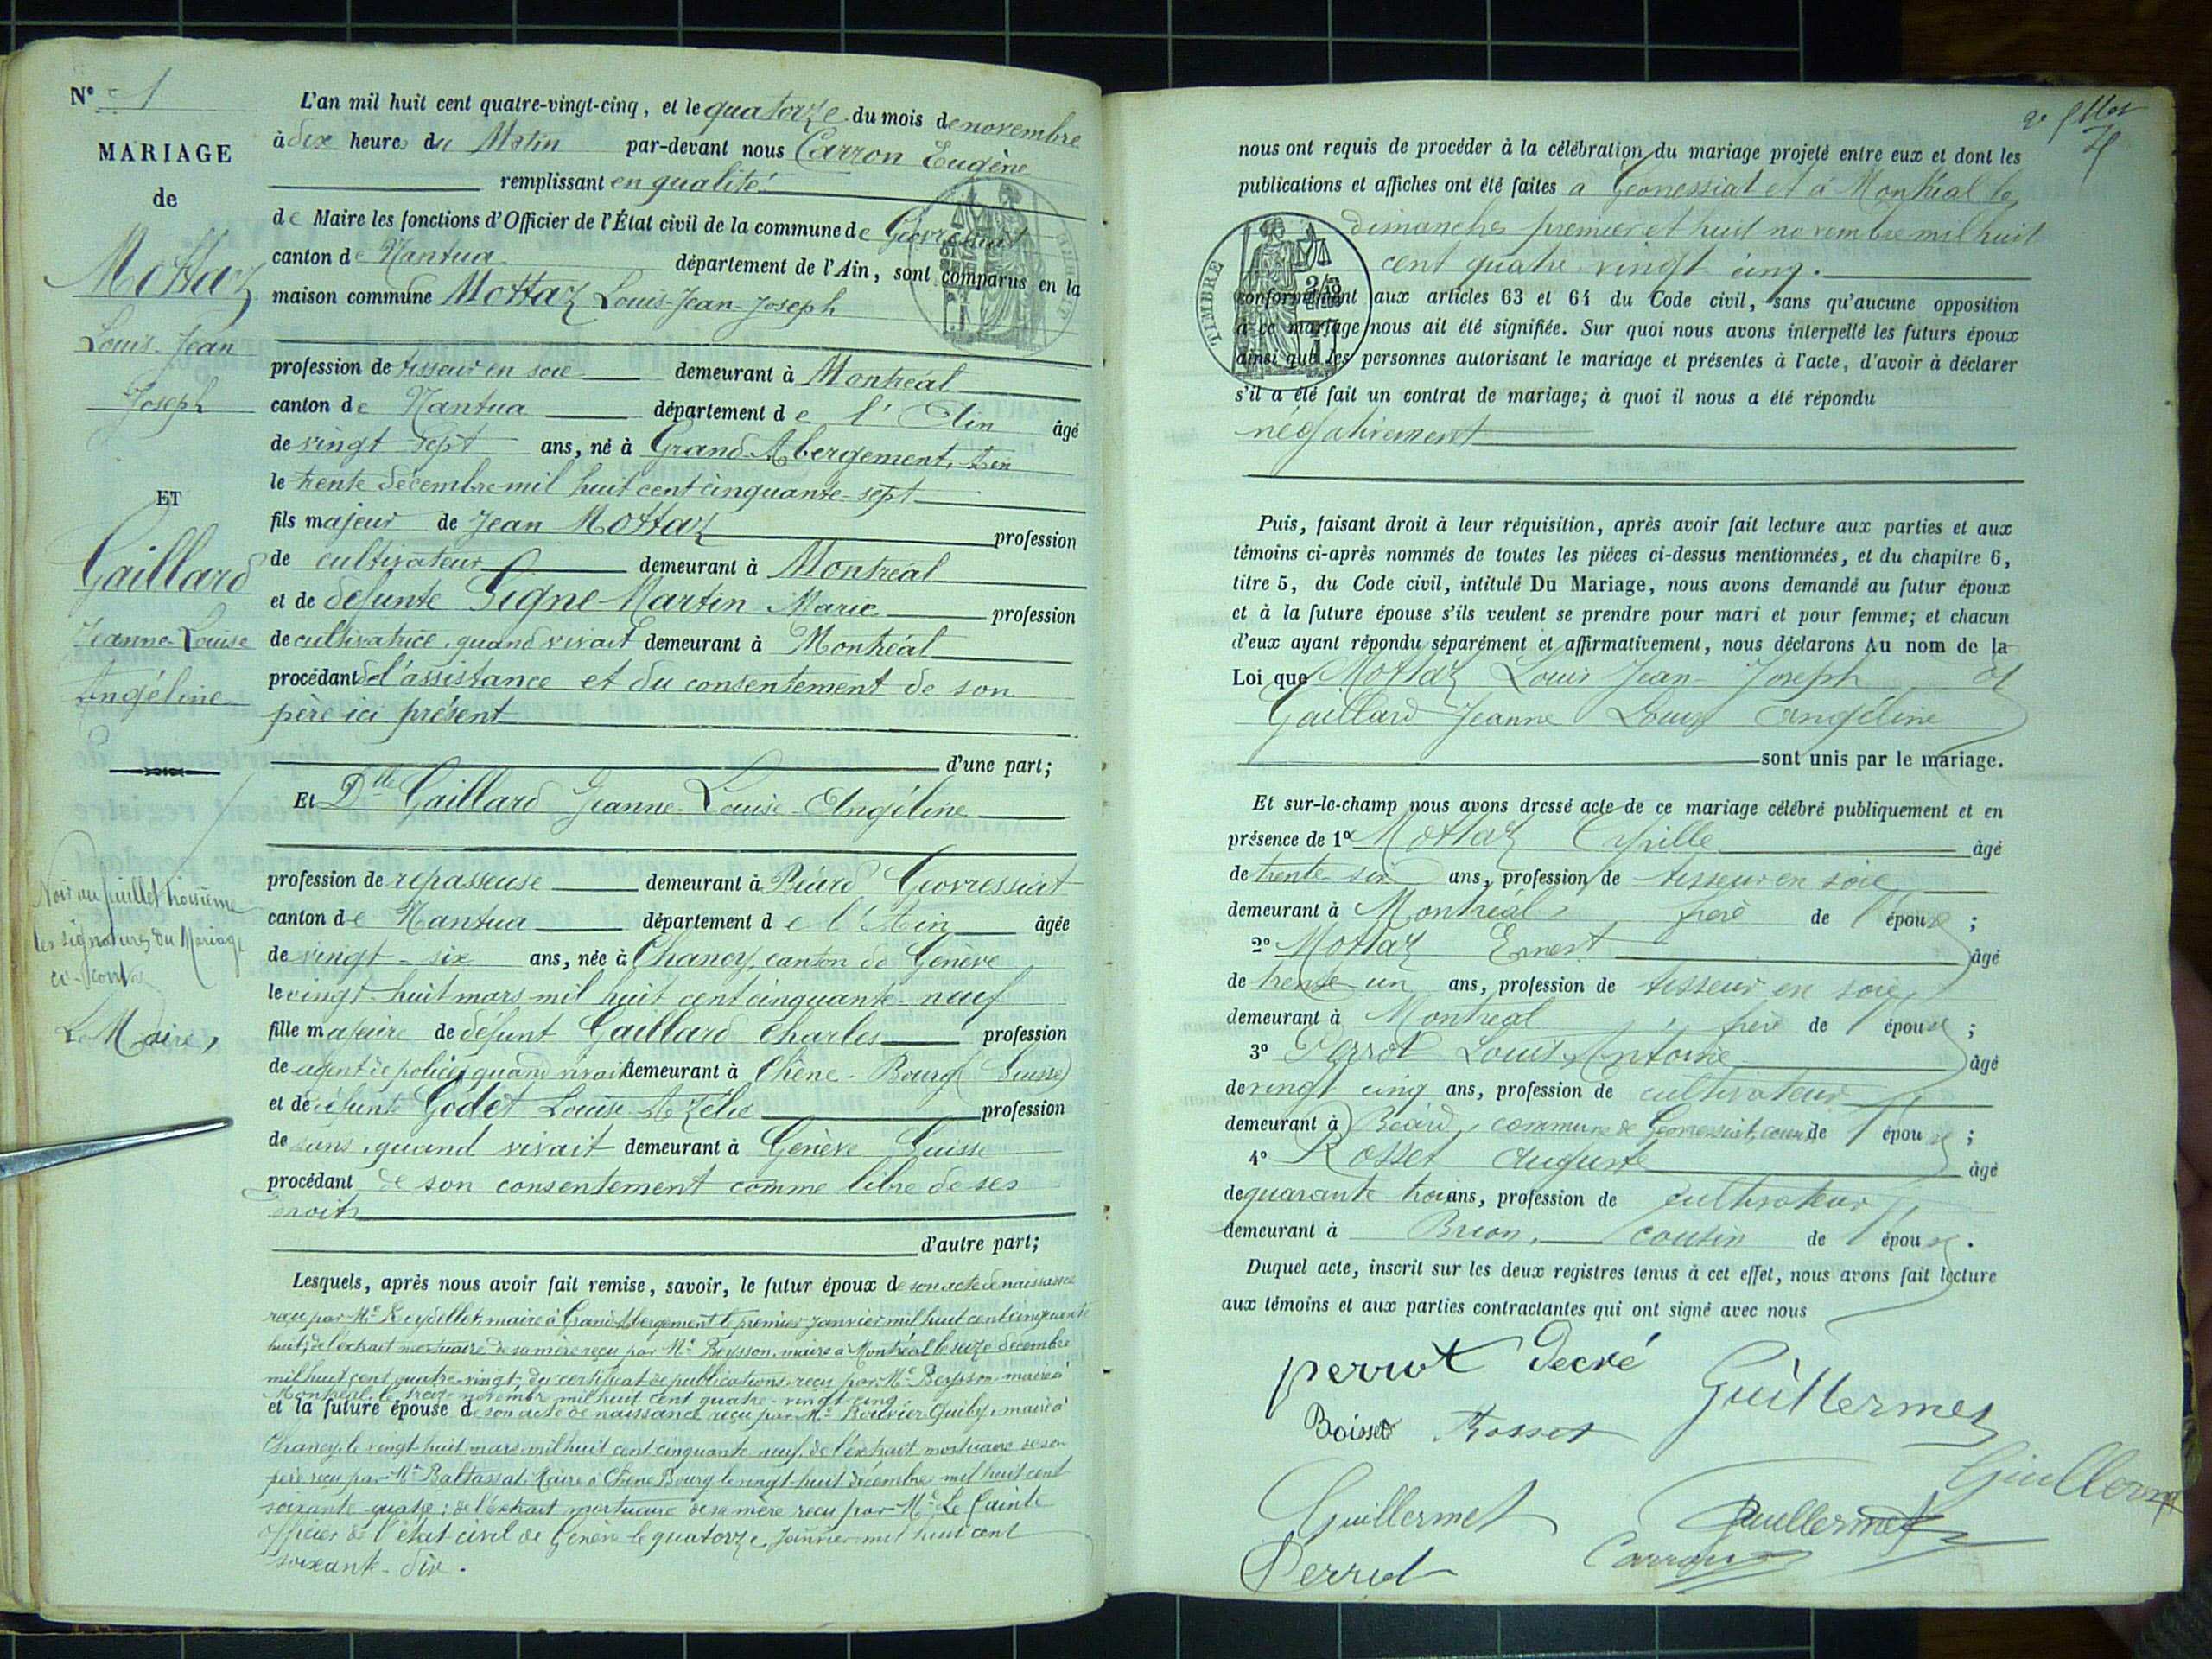 N° 1
MARIAGE
de
Mottaz
Louis-Jean
Joseph
ET
Gaillard
Jeanne-Louise
Angéline
Voir au feuillet troisième
les signatures du Mariage
ci-contre
Le Maire,
L'an mil huit cent quatre-vingt-cinq, et le quatorze du mois de novembre
à dix heures du Matin par-devant nous Carron Eugène
remplissant en qualité
de Maire les fonctions d'Officier de l'État civil de la commune de Géovressiat
canton de Nantua département de l'Ain, sont comparus en la
maison commune Mottaz Louis-Jean-Joseph
profession de tisseur en soie demeurant à Montréal
canton de Nantua département de l'Ain âgé
de vingt-sept ans, né à Grand Abergement, Ain
le trente décembre mil huit cent cinquante-sept
fils majeur de Jean Mottaz profession
de cultivateur demeurant à Montréal
et de défunte Signe-Martin Marie profession
de cultivatrice, quand vivait demeurant à Montréal
procédant de l'assistance et du consentement de son
père ici présent
d'une part;
Et Dlle Gaillard Jeanne-Louise-Angéline
profession de repasseuse demeurant à Béard Géovressiat
canton de Nantua département de l'Ain âgée
de vingt-six ans, née à Chancy, canton de Genève
le vingt-huit mars mil huit cent cinquante-neuf
fille majeure de défunt Gaillard Charles profession
de agent de police, quand vivait demeurant à Chêne-Bourg (Suisse)
et de défunte Godet Louise Azélie profession
de sans, quand vivait demeurant à Genève Suisse
procédant de son consentement comme libre de ses
droits
d'autre part;
Lesquels, après nous avoir fait remise, savoir, le futur époux de son acte de naissance
reçu par Mr Reydellet, maire à Grand Abergement le premier janvier mil huit cent cinquante
huit; de l'extrait mortuaire de sa mère reçu par Mr Beysson, maire à Montréal le seize décembre
mil huit cent quatre-vingt; du certificat de publications reçu par Mr Beysson maire à
Montréal, le treize novembre mil huit cent quatre-vingt-cinq
et la future épouse de son acte de naissance reçu par Mr Bouvier Quiby, maire à
Chancy, le vingt-huit mars mil huit cent cinquante neuf, de l'extrait mortuaire de son
père reçu par Mr Baltassat, Maire à Chêne Bourg, le vingt-huit décembre mil huit cent
soixante-quatre; de l'extrait mortuaire de sa mère reçu par Mr Le Cointe
officier de l'état civil de Genève le quatorze janvier mil huit cent
soixante-dix.
nous ont requis de procéder à la célébration du mariage projeté entre eux et dont les
publications et affiches ont été faites à Géovressiat et à Montréal les
dimanches premier et huit novembre mil huit
cent quatre-vingt cinq.
TIMBRE
conformément aux articles 63 et 64 du Code civil, sans qu'aucune opposition
à ce mariage nous ait été signifiée. Sur quoi nous avons interpellé les futurs époux
ainsi que les personnes autorisant le mariage et présentes à l'acte, d'avoir à déclarer
s'il a été fait un contrat de mariage; à quoi il nous a été répondu
négativement
Puis, faisant droit à leur réquisition, après avoir fait lecture aux parties et aux
témoins ci-après nommés de toutes les pièces ci-dessus mentionnées, et du chapitre 6,
titre 5, du Code civil, intitulé Du Mariage, nous avons demandé au futur époux
et à la future épouse s'ils veulent se prendre pour mari et pour femme; et chacun
d'eux ayant répondu séparément et affirmativement, nous déclarons Au nom de la
Loi que Mottaz Louis Jean-Joseph et
Gaillard Jeanne Louise Angéline
sont unis par le mariage.
Et sur-le-champ nous avons dressé acte de ce mariage célébré publiquement et en
présence de 1° Mottaz Cyrille âgé
de trente-six ans, profession de tisseur en soie
demeurant à Montréal, frère de l'époux ;
2° Mottaz Ernest âgé
de trente-un ans, profession de tisseur en soie
demeurant à Montréal, frère de l'époux ;
3° Perrot Louis Antoine âgé
de vingt cinq ans, profession de cultivateur
demeurant à Béard, commune de Géovressiat, cousin de l'épouse ;
4° Rosset Auguste âgé
de quarante trois ans, profession de cultivateur
demeurant à Brion, cousin de l'épouse.
Duquel acte, inscrit sur les deux registres tenus à cet effet, nous avons fait lecture
aux témoins et aux parties contractantes qui ont signé avec nous
perrot Decré Guillermet
Boisset Rosset
Guillermet Guillermet Guillermet
Perrot Carron